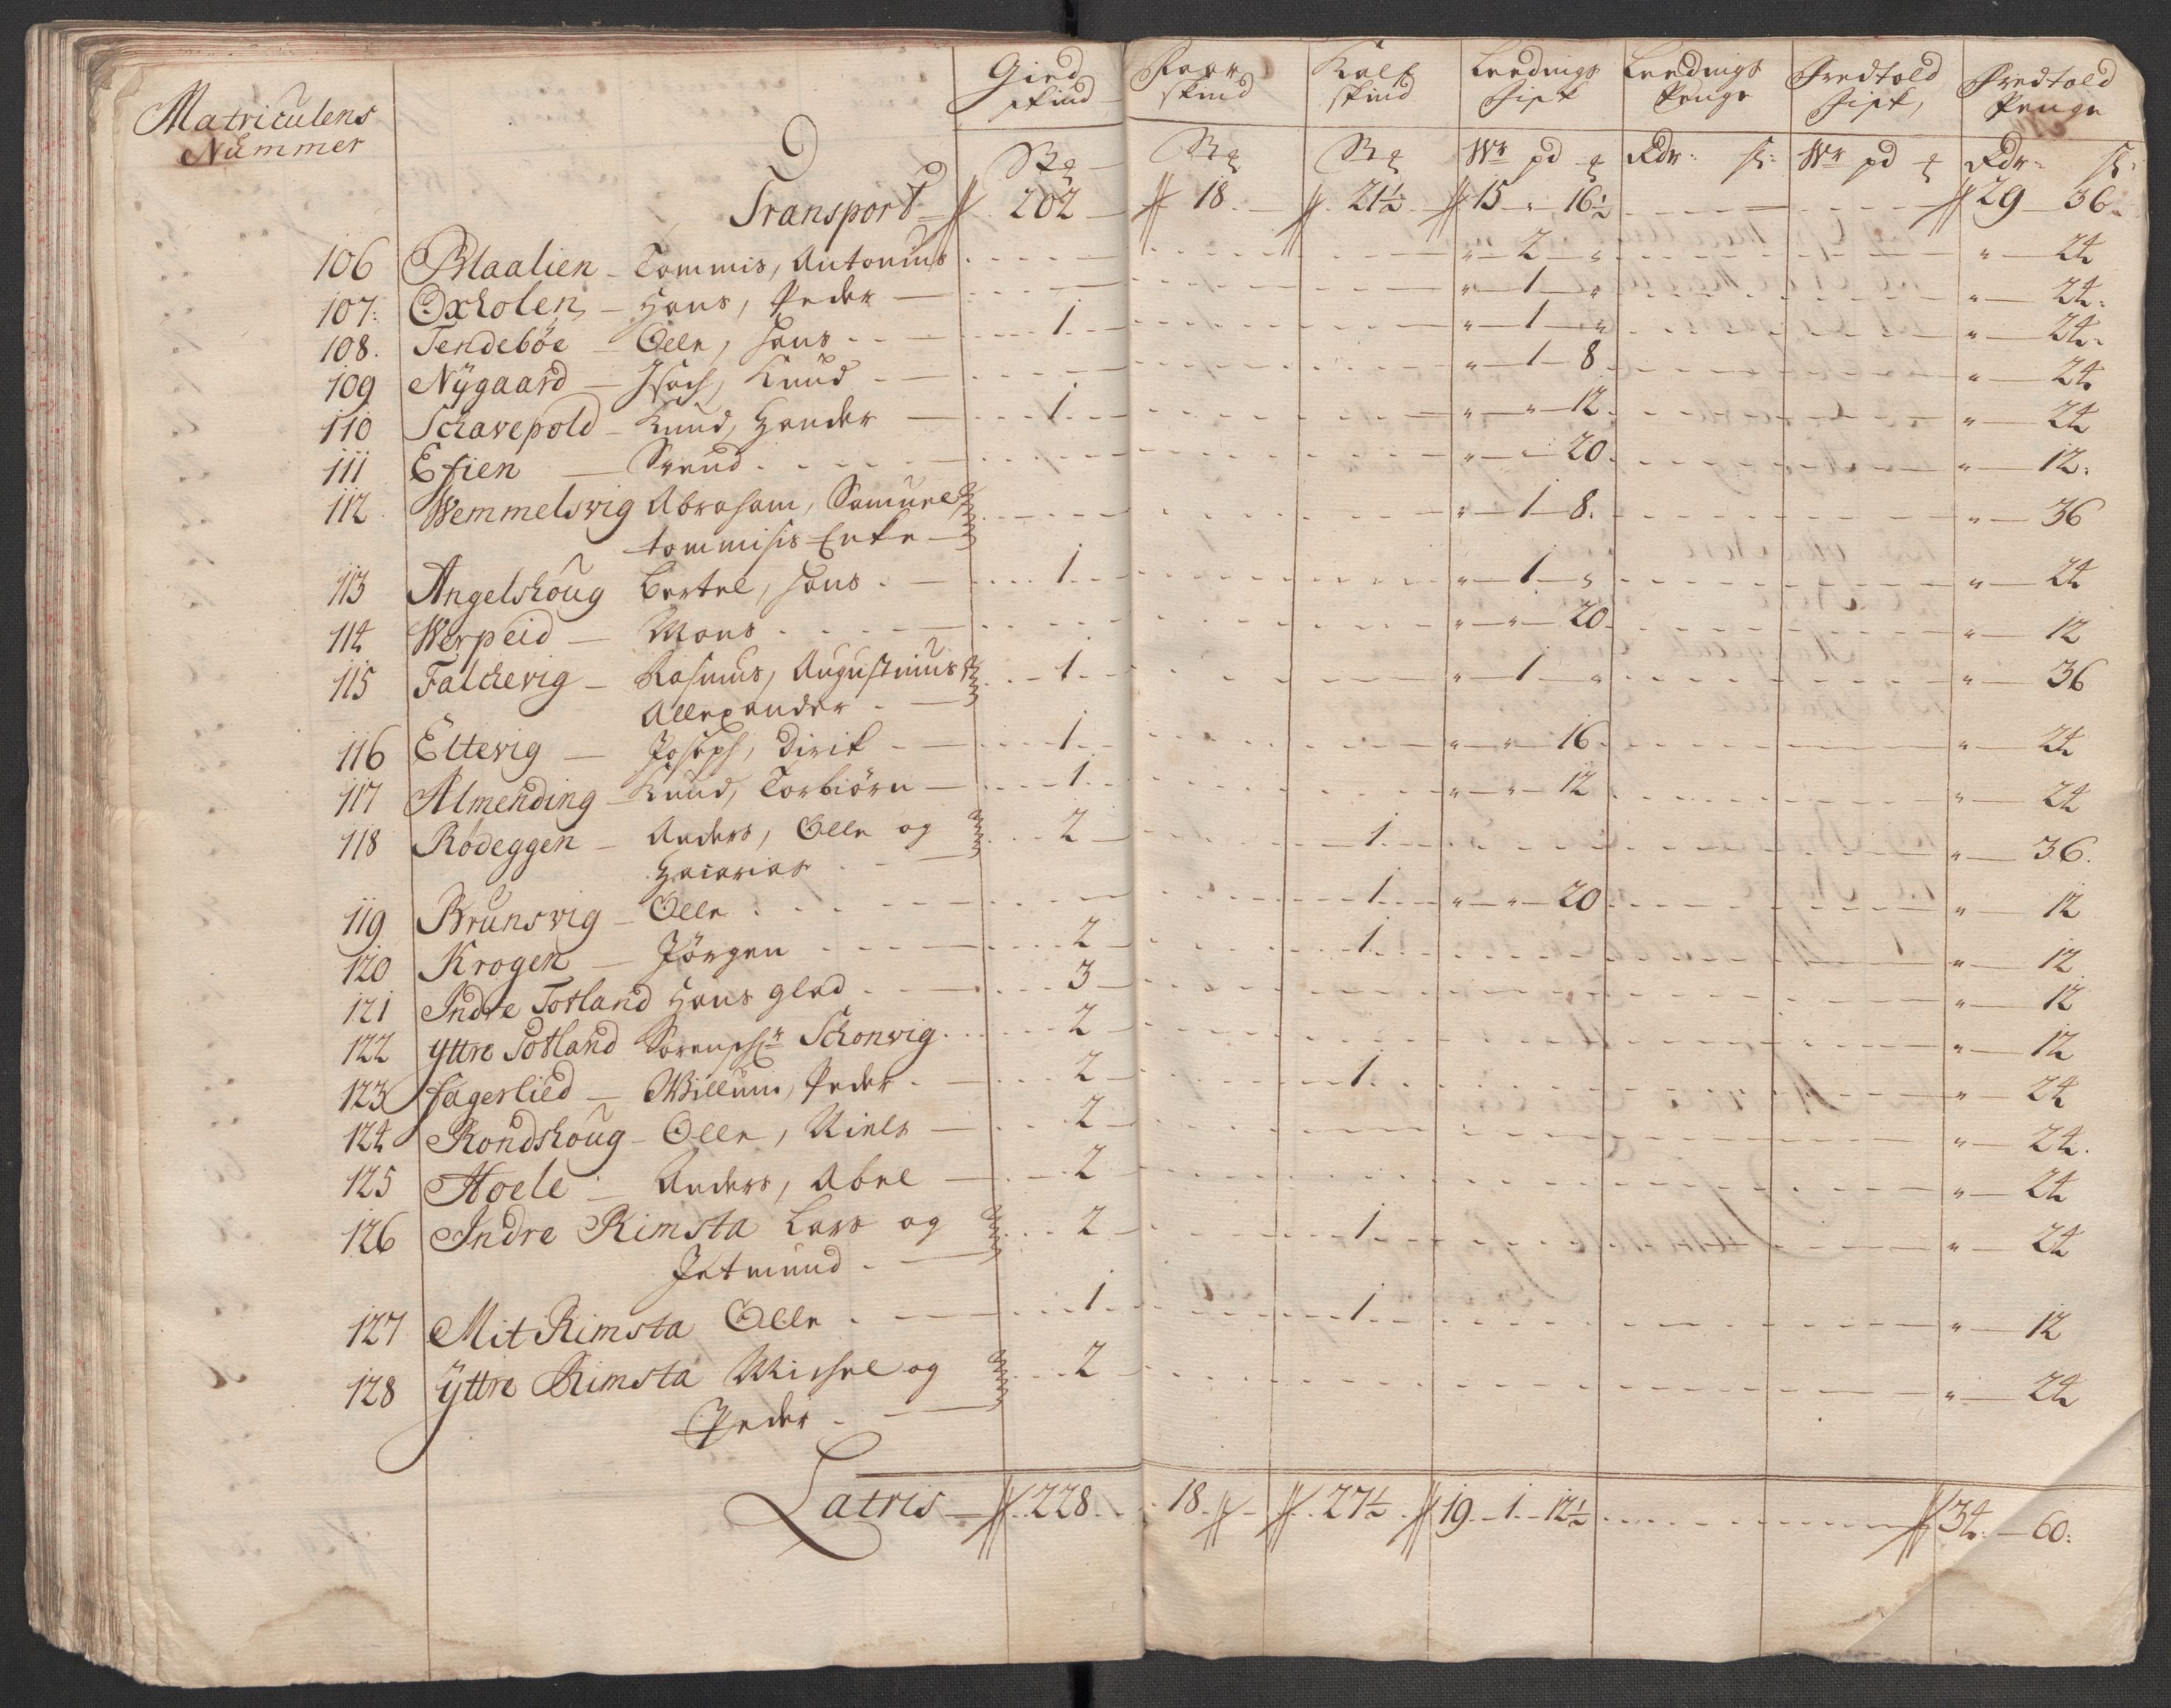 Matriculens Nummer | Gied skind | Faar skind | Kalf skind | Leedings Fisk | Leedings Penge | Fredtold Fisk, | Fredtold Penge
Bꝫ | Bꝫ | Bꝫ | Wr pd | Rdr: ß: | Wr pd | Rdr: ß:
Transport | 202 | 18 | 21½ | 15 " 16½ | | | 29 36
106 Blaalien - Tommis, Antonius | | | | " 2 " | | | " 24
107: Oxholen - Hans, Peder | | | | " 1 " | | | " 24:
108. Tendebøe - Olle, Hans | 1 | | | " 1 " | | | " 24
109 Nÿgaard - Isach, Knud | | | | " 1 8 | | | " 24
110 Schavepold - Knud, Hander | 1 | | | " " 12 | | | " 24
111 Efien - Svend | | | | " " 20 | | | " 12:
112 Wemmelsvig Abraham, Samuel | | | | " 1 8. | | | " 36
tommisis Enke
113 Angelshoug Bertel, Hans | 1 | | | " 1 " | | | " 24
114 Werpeid - Mons | | | | " " 20 | | | " 12
115 Falchevig - Rasmus, Augustinus | 1 | | | " 1 " | | | " 36
Allexander
116 Eltevig - Joseph, Dirik | 1 | | | " " 16 | | | " 24
117 Almending - Knud, Torbiörn | 1 | | | " " 12 | | | " 24
118 Rødeggen - Anders, Olle og | 2 | | 1 | | | | " 36.
Hacarias
119 Brunsvig - Olle | | | 1 | " " 20 | | | " 12
120 Krogen - Jörgen | 2 | | 1 | | | | " 12
121 Indre Totland Hans glad | 3 | | | | | | " 12
122 yttre Totland Sorensch: Schonvig | 2 | | | | | | " 12
123 fagerlied - Willum, Peder | 2 | | 1 | | | | " 24
124 Rondshoug - Olle, Niels | 2 | | | | | | " 24.
125 Hoele - Anders, Abel | 2 | | | | | | " 24
126 Indre Rimsta Lars og | 2 | | 1 | | | | " 24
Jetmund
127 Mit Rimsta Olle | 1 | | 1 | | | | " 12
128 ÿttre Rimsta Michel og | 2 | | | | | | " 24
Peder
Latris | 228 | 18 | 27½ | 19 1 12½ | | | 34 60: